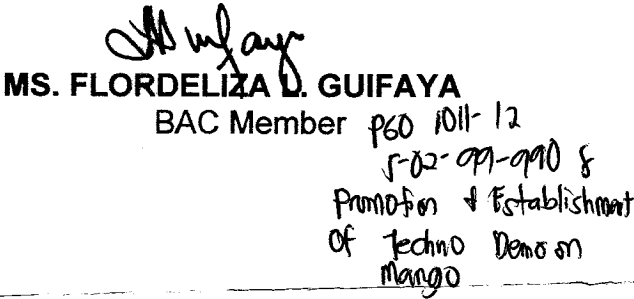 MS. FLORDELIZA L. GUIFAYA
BAC Member
PGO 1011-12
5-02-99-990 &
Promotion & Establishment
Of Techno Demo on
Mango